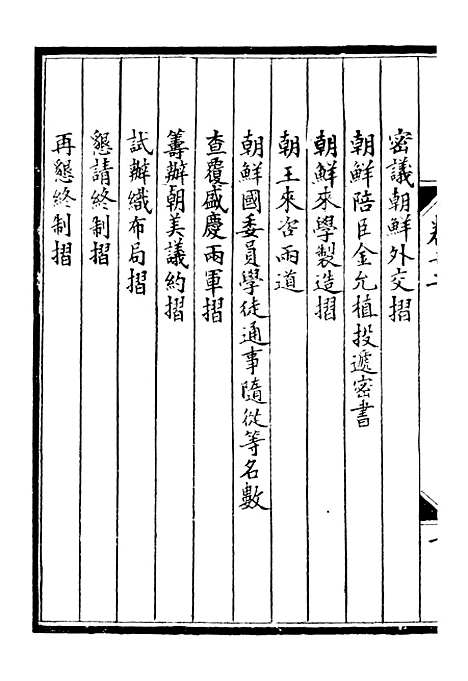 密議朝鮮外交摺
朝鮮陪臣金允植投遞密書
朝鮮來學製造摺
朝王來咨兩道
朝鮮國委員學徒通事隨從等名數
查覆盛慶兩軍摺
籌辦朝美議約摺
試辦織布局摺
懇請終制摺
再懇終制摺